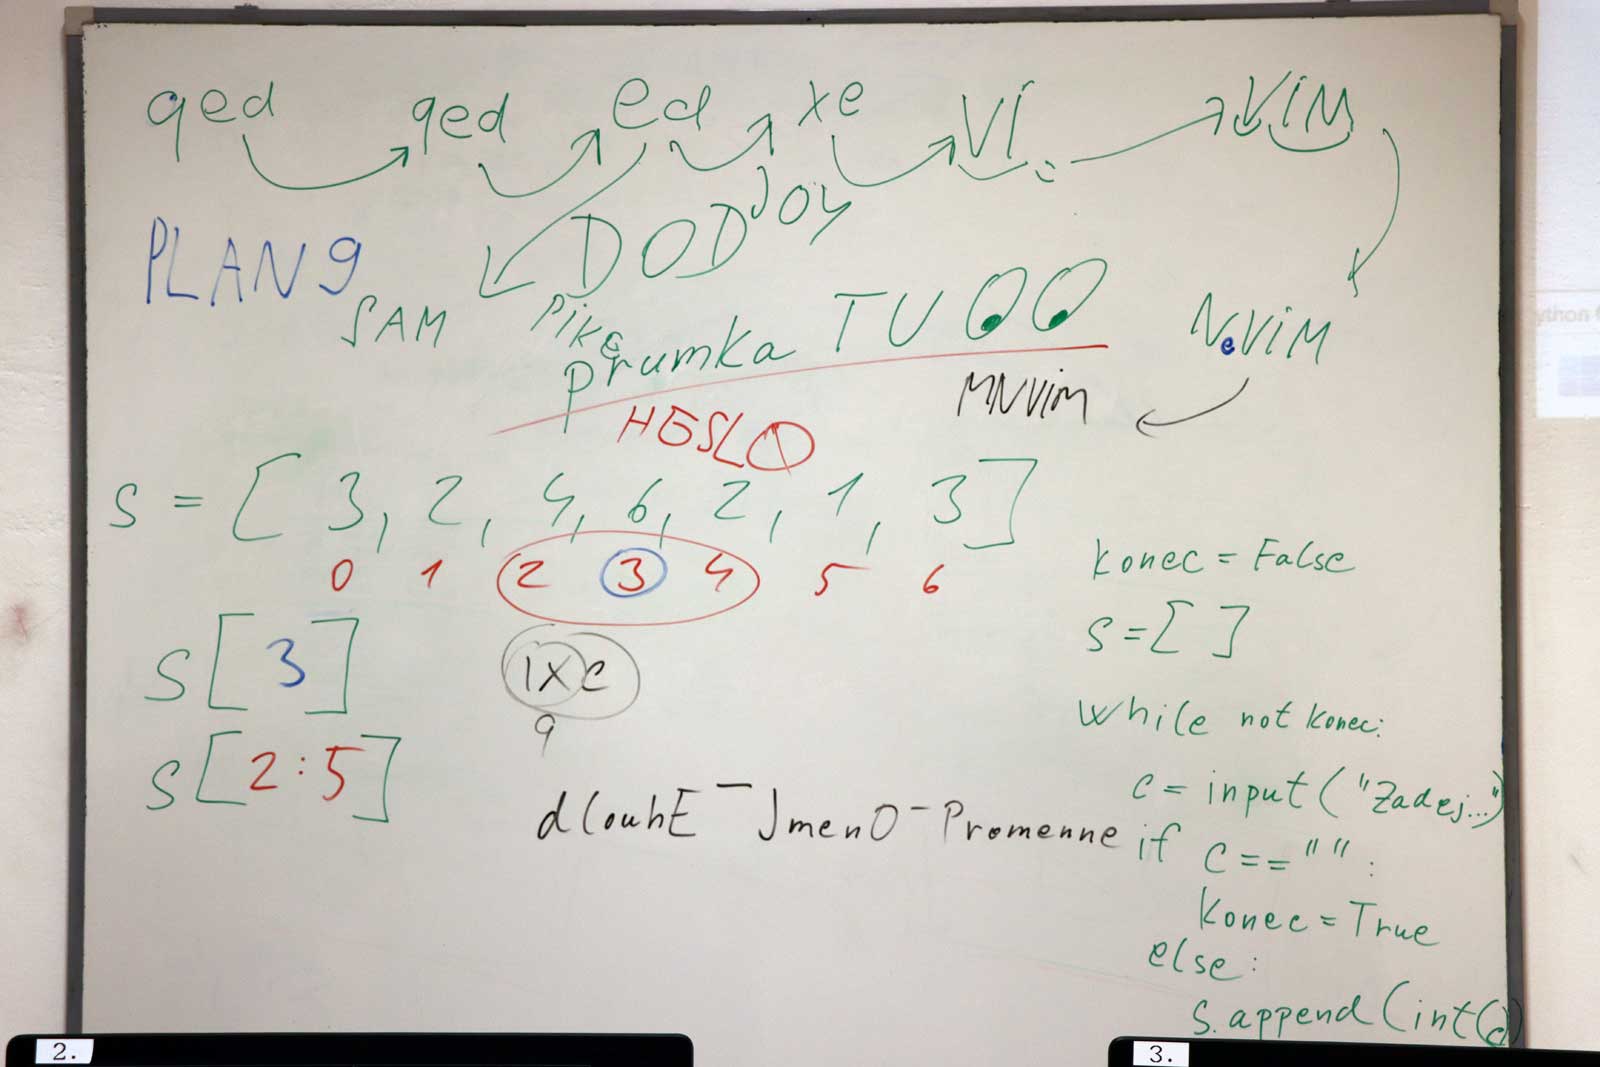 qed qed ed xe Vi Vim
PLAN 9
DOD JOY
SAM
Pike
prumka TU
NeViM
MNViM
HESLO
s = [ 3, 2, 4, 6, 2, 1, 3 ]
0 1 2 3 4 5 6
s [ 3 ]
s [ 2 : 5 ]
IXC
9
dlouhE_JmenO_Promenne
konec = False
s = [ ]
while not konec:
c = input ("Zadej...")
if c == "" :
konec = True
else :
s.append (int(c)
2.
3.